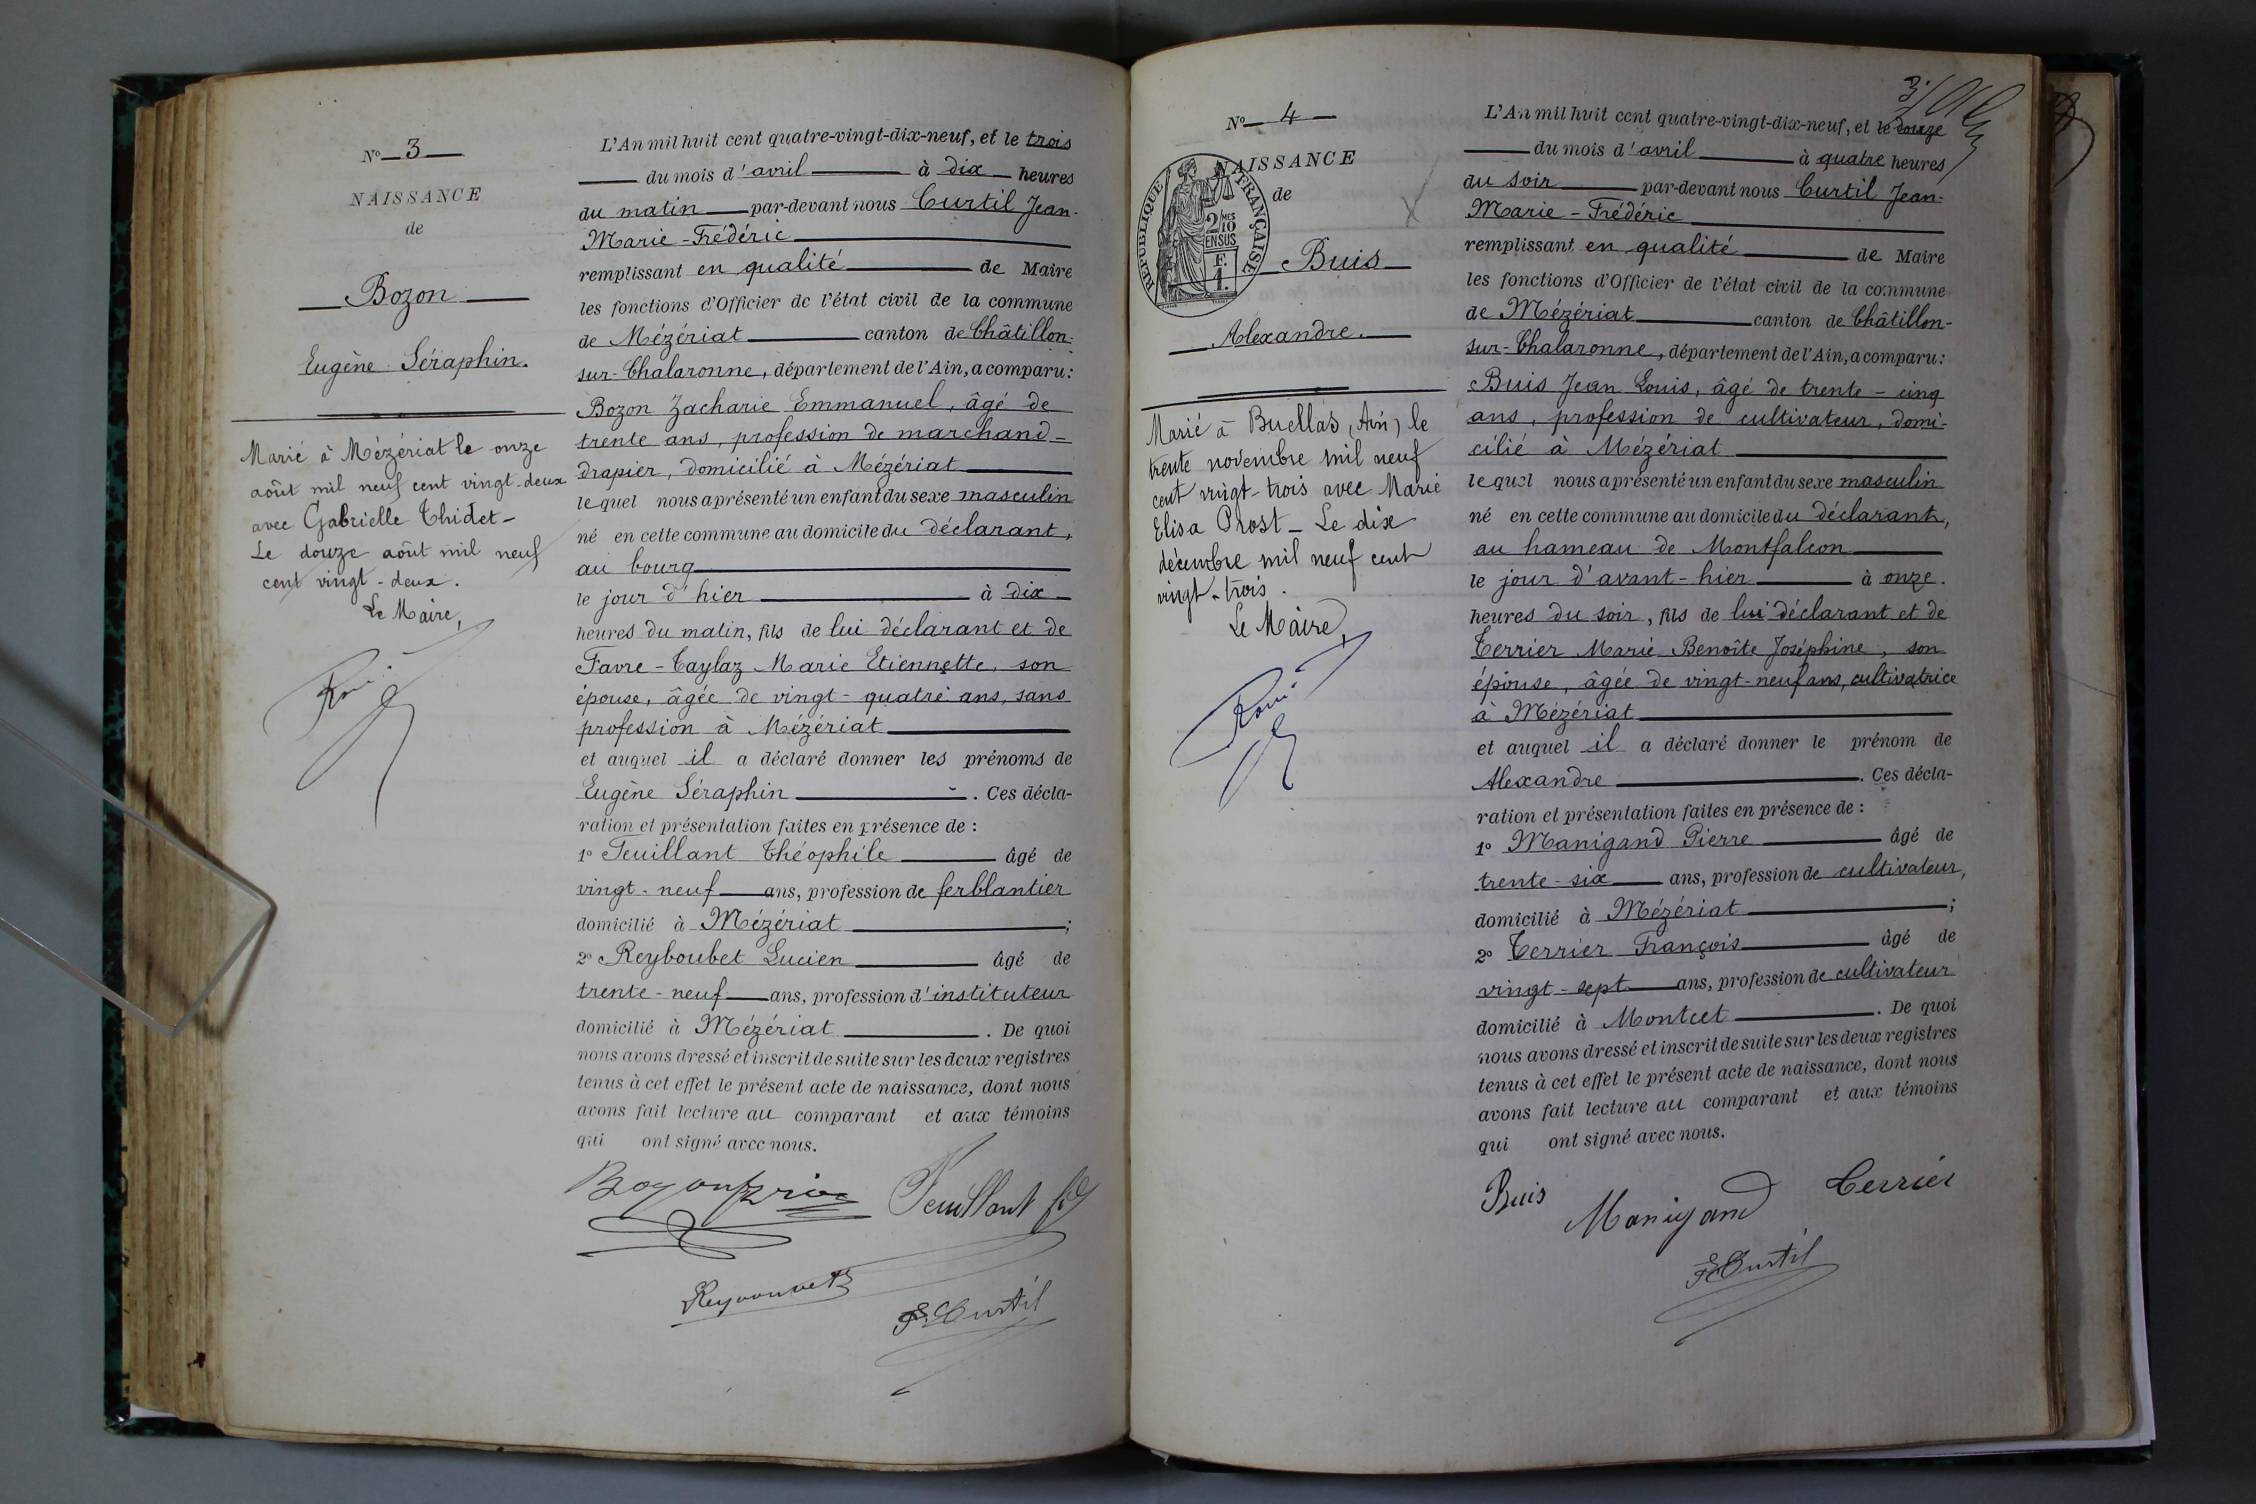 N° 3
NAISSANCE
de
Bozon
Eugène Séraphin.
Marié à Mézériat le onze
août mil neuf cent vingt-deux
avec Gabrielle Thidet -
Le douze août mil neuf
cent vingt-deux.
Le Maire,
L'An mil huit cent quatre-vingt-dix-neuf, et le trois
du mois d'avril à dix heures
du matin par-devant nous Curtil Jean-
Marie-Frédéric
remplissant en qualité de Maire
les fonctions d'Officier de l'état civil de la commune
de Mézériat canton de Châtillon-
sur-Chalaronne, département de l'Ain, a comparu:
Bozon Zacharie Emmanuel, âgé de
trente ans, profession de marchand-
drapier, domicilié à Mézériat
lequel nous a présenté un enfant du sexe masculin
né en cette commune au domicile du déclarant,
au bourg
le jour d'hier à dix
heures du matin, fils de lui déclarant et de
Favre-Taylaz Marie Etiennette, son
épouse, âgée de vingt-quatre ans, sans
profession à Mézériat
et auquel il a déclaré donner les prénoms de
Eugène Séraphin. Ces décla-
ration et présentation faites en présence de :
1° Feuillant Théophile âgé de
vingt-neuf ans, profession de ferblantier
domicilié à Mézériat ;
2° Reyboubet Lucien âgé de
trente-neuf ans, profession d'instituteur
domicilié à Mézériat. De quoi
nous avons dressé et inscrit de suite sur les deux registres
tenus à cet effet le présent acte de naissance, dont nous
avons fait lecture au comparant et aux témoins
qui ont signé avec nous.
Feuillant
F. Curtil
N° 4
NAISSANCE
de
RÉPUBLIQUE FRANÇAISE
2/10 MES
EN SUS
F.
1.
Buis
Alexandre.
Marié à Buellas, (Ain) le
trente novembre mil neuf
cent vingt-trois avec Marie
Elisa Prost - Le dix
décembre mil neuf cent
vingt-trois.
Le Maire,
L'An mil huit cent quatre-vingt-dix-neuf, et le douze
du mois d'avril à quatre heures
du soir par-devant nous Curtil Jean-
Marie-Frédéric
remplissant en qualité de Maire
les fonctions d'Officier de l'état civil de la commune
de Mézériat canton de Châtillon-
sur-Chalaronne, département de l'Ain, a comparu:
Buis Jean Louis, âgé de trente-cinq
ans, profession de cultivateur, domi-
cilié à Mézériat
lequel nous a présenté un enfant du sexe masculin
né en cette commune au domicile du déclarant,
au hameau de Montfalcon
le jour d'avant-hier à onze
heures du soir, fils de lui déclarant et de
Terrier Marie Benoîte Joséphine, son
épouse, âgée de vingt-neuf ans, cultivatrice
à Mézériat
et auquel il a déclaré donner le prénom de
Alexandre. Ces décla-
ration et présentation faites en présence de :
1° Manigand Pierre âgé de
trente-six ans, profession de cultivateur,
domicilié à Mézériat ;
2° Terrier François âgé de
vingt-sept ans, profession de cultivateur
domicilié à Montcet. De quoi
nous avons dressé et inscrit de suite sur les deux registres
tenus à cet effet le présent acte de naissance, dont nous
avons fait lecture au comparant et aux témoins
qui ont signé avec nous.
Buis Manigand Terrier
F. Curtil